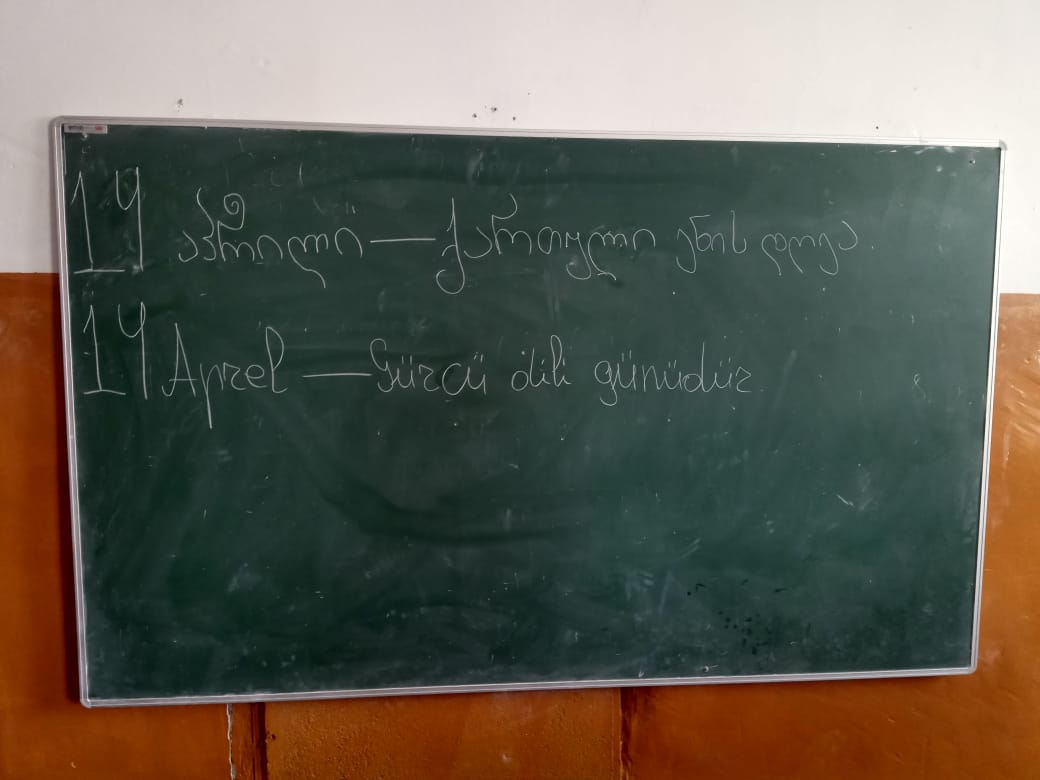 14 აპრილი — ქართული ენის დღეა.
14 Aprel — Gürcü dili günüdür